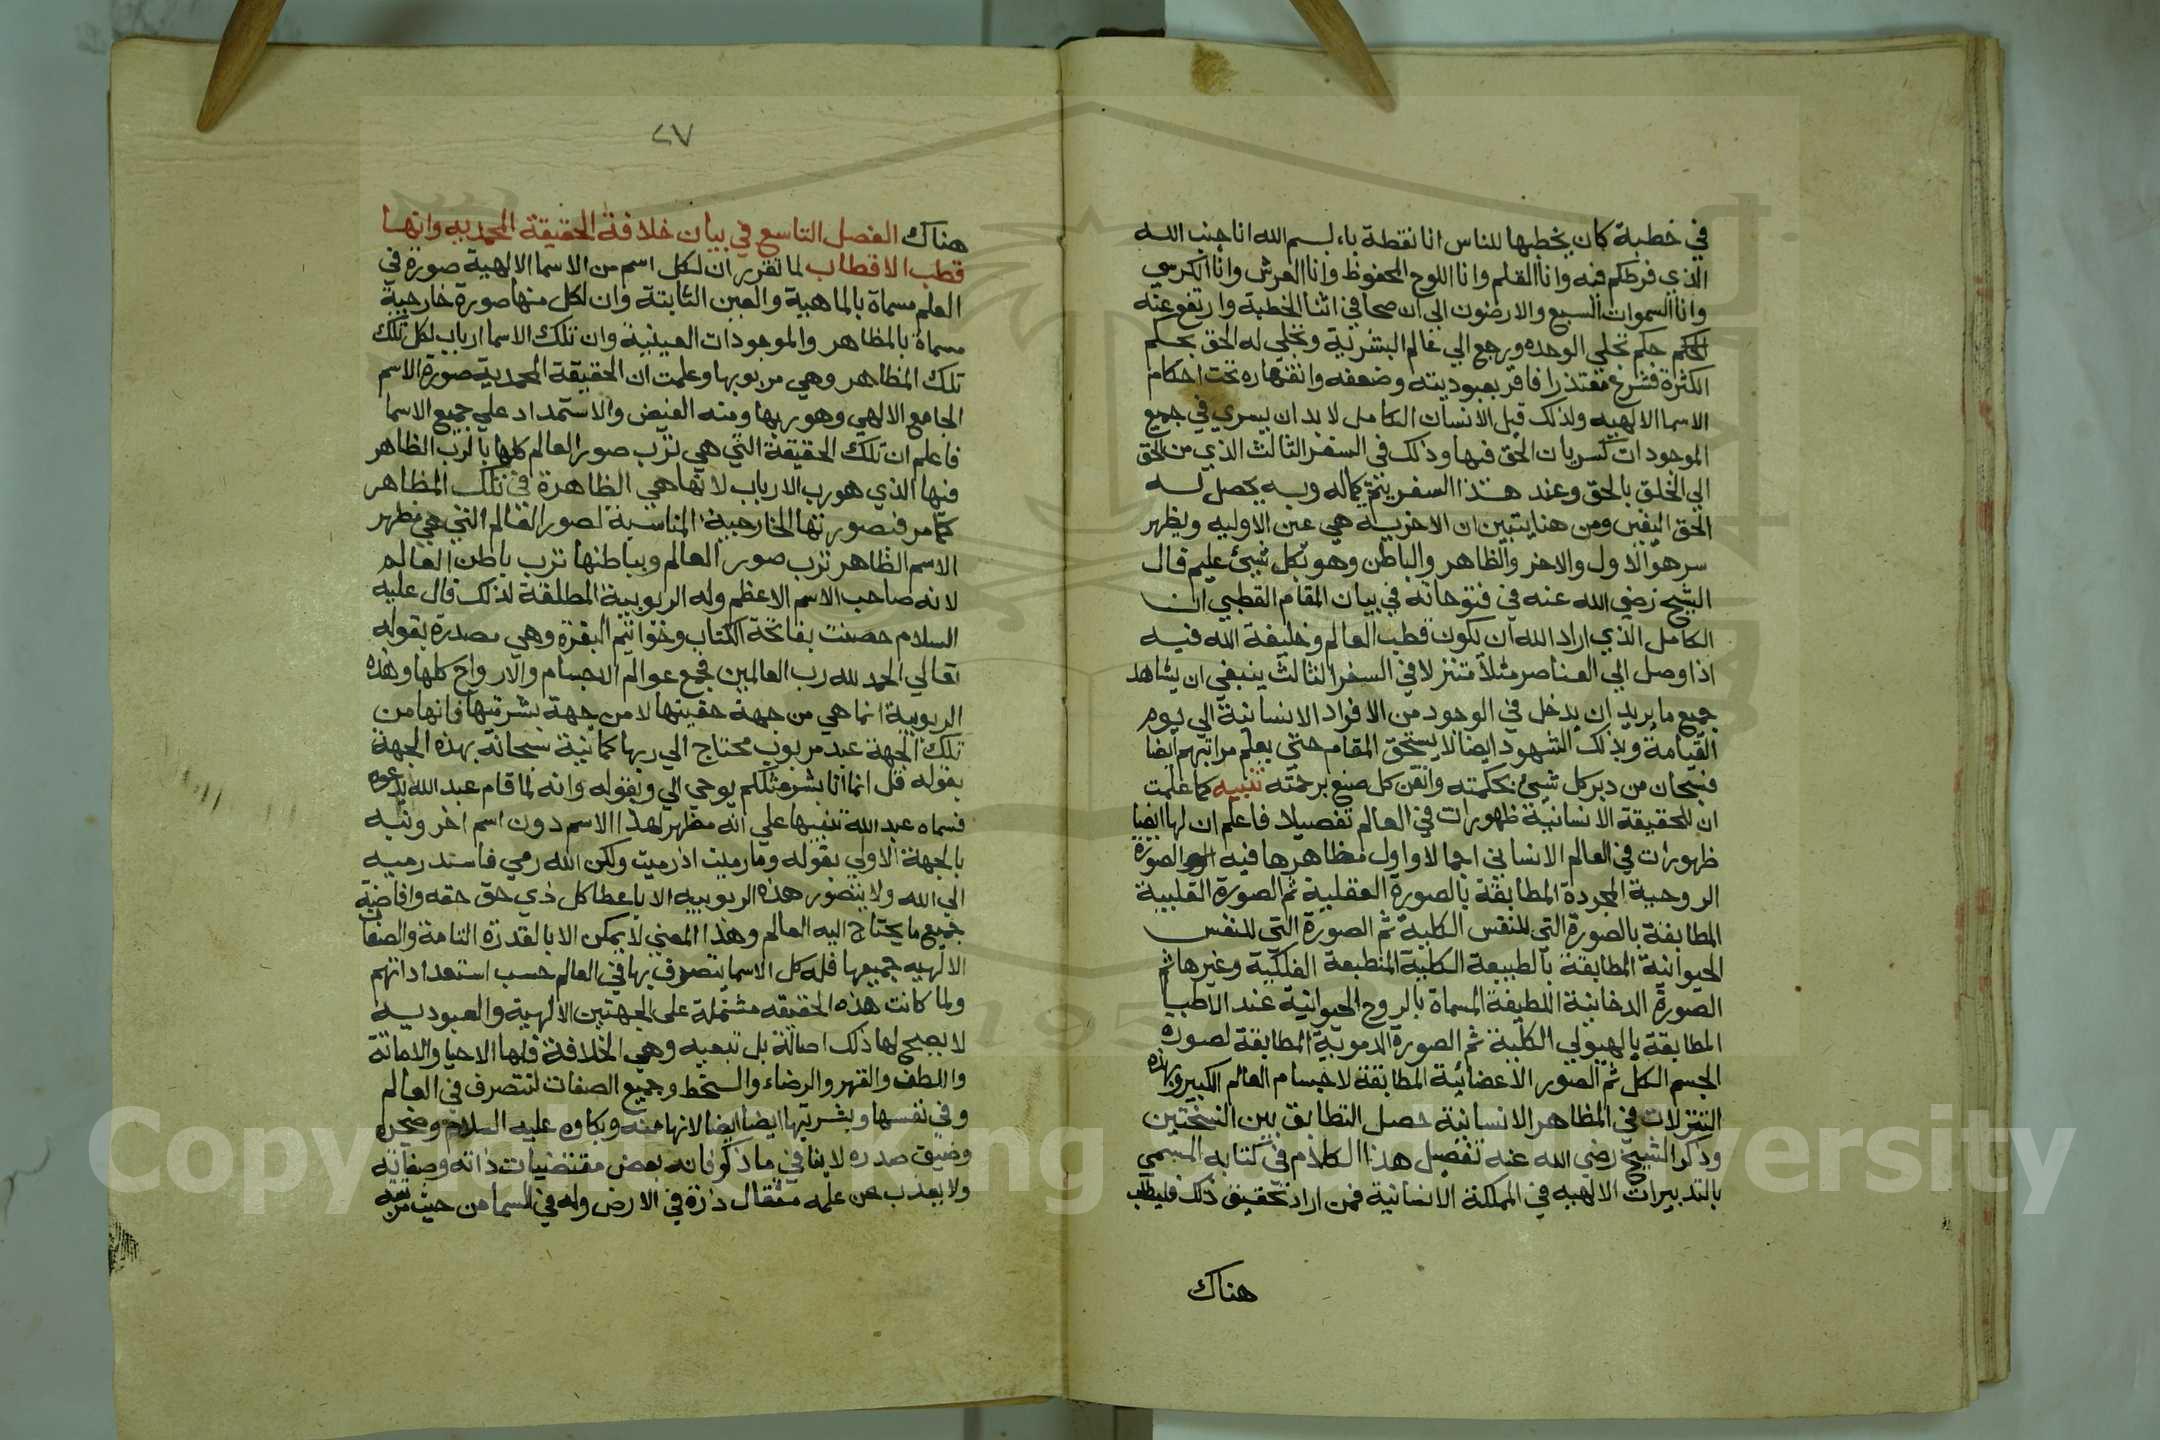 في خطبة كان يخطبها للناس انا نقطة باء بسم الله انا جنب الله
الذي فرطتم فيه وانا القلم وانا اللوح المحفوظ وانا العرش وانا الكرسي
وانا السموات السبع والارضون الي ان صحا في اثنا الخطبة وارتفع عنه
حكم تجلي الوحده ورجع الي عالم البشرية وتجلي له الحق بحكم
الكثرة فشرع معتذرا فاقر بعبوديته وضعفه وانقهاره تحت احكام
الاسما الالهيه ولذلك قيل الانسان الكامل لا بد ان يسري في جميع
الموجودات كسريان الحق فيها وذلك في السفر الثالث الذي من الحق
الي الخلق بالحق وعند هذا السفر يتم كماله وبه يحصل له
الحق اليقين ومن هنا يتبين ان الاخريه هي عين الاوليه ويظهر
سر هو الاول والاخر والظاهر والباطن وهو بكل شيئ عليم قال
الشيخ رضي الله عنه في فتوحاته في بيان المقام القطبي ان
الكامل الذي اراد الله ان يكون قطب العالم وخليفة الله فيه
اذا وصل الي العناصر مثلا متنزلا في السفر الثالث ينبغي ان يشاهد
جميع ما يريد ان يدخل في الوجود من الافراد الانسانية الي يوم
القيامة وبذلك الشهود ايضا لا يستحق المقام حتي يعلم مراتبهم ايضا
فسبحان من دبر كل شيئ بحكمته واتقن كل صنع برحمته تنبيه كما علمت
ان للحقيقة الانسانية ظهورات في العالم تفصيلا فاعلم ان لها ايضا
ظهورات في العالم الانساني اجمالا واول مظاهرها فيه الصورة
الروحية المجردة المطابقة بالصورة العقلية ثم الصورة القلبية
المطابقة بالصورة التي للنفس الكلية ثم الصورة التي للنفس
الحيوانية المطابقة بالطبيعة الكلية المنطبعة الفلكية وغيرها ثم
الصورة الدخانية اللطيفة المسماة بالروح الحيوانية عند الاطبا
المطابقة بالهيولي الكلية ثم الصورة الدموية المطابقة لصوره
الجسم الكل ثم الصور الاعضائية المطابقة لاجسام العالم الكبير وبهذه
التنزلات في المظاهر الانسانية حصل التطابق بين النسختين
وذكر الشيخ رضي الله عنه تفصيل هذا الكلام في كتابه المسمي
بالتدبيرات الالهيه في المملكة الانسانية فمن اراد تحقيق ذلك فليطلب
هناك
٢٧
هناك الفصل التاسع في بيان خلافة الحقيقة المحمديه وانها
قطب الاقطاب لما تقرر ان لكل اسم من الاسما الالهية صورة في
العلم مسماة بالماهية والعين الثابتة وان لكل منها صورة خارجية
مسماة بالمظاهر والموجودات العينية وان تلك الاسما ارباب لكل تلك
تلك المظاهر وهي مربوبها وعلمت ان الحقيقة المحمدية صورة الاسم
الجامع الالهي وهو ربها ومنه الفيض والاستمداد علي جميع الاسما
فاعلم ان تلك الحقيقة التي هي ترب صور العالم كلها بالرب الظاهر
فيها الذي هو رب الارباب لانها هي الظاهرة في تلك المظاهر
كما مر فبصورتها الخارجية المناسبة لصور العالم التي هي مظهر
الاسم الظاهر ترب صور العالم وبباطنها ترب باطن العالم
لانه صاحب الاسم الاعظم وله الربوبية المطلقة لذلك قال عليه
السلام خصصت بفاتحة الكتاب وخواتيم البقرة وهي مصدرة بقوله
تعالي الحمد لله رب العالمين فجمع عوالم الاجسام والارواح كلها وهذه
الربوبية انما هي من جهة حقيتها لا من جهة بشريتها فانها من
تلك الجهة عبد مربوب محتاج الي ربها كما نبه سبحانه بهذه الجهة
بقوله قل انما انا بشر مثلكم يوحي الي وبقوله وانه لما قام عبد الله يدعوه
فسماه عبد الله تنبيها علي انه مظهر لهذا الاسم دون اسم اخر ونبه
بالجهة الاولي بقوله وما رميت اذ رميت ولكن الله رمي فاسند رميه
الي الله ولا يتصور هذه الربوبيه الا باعطا كل ذي حق حقه وافاضة
جميع ما يحتاج اليه العالم وهذا المعني لا يمكن الا بالقدرة التامة والصفات
الالهيه جميعها فله كل الاسما يتصرف بها في العالم حسب استعداداتهم
ولما كانت هذه الحقيقه مشتملة على الجهتين الالهية والعبوديه
لا يصح لها ذلك اصالة بل تبعيه وهي الخلافة فلها الاحيا والاماتة
واللطف والقهر والرضاء والسخط وجميع الصفات لتتصرف في العالم
وفي نفسها وبشريتها ايضا ايضا لانها منه وبكاوه عليه السلام وضجره
وضيق صدره لا ينافي ما ذكر فانه بعض مقتضيات ذاته وصفاته
ولا يعذب عن علمه مثقال ذرة في الارض ولا في السما من حيث مرتبته
Copyright © King Saud University
1957